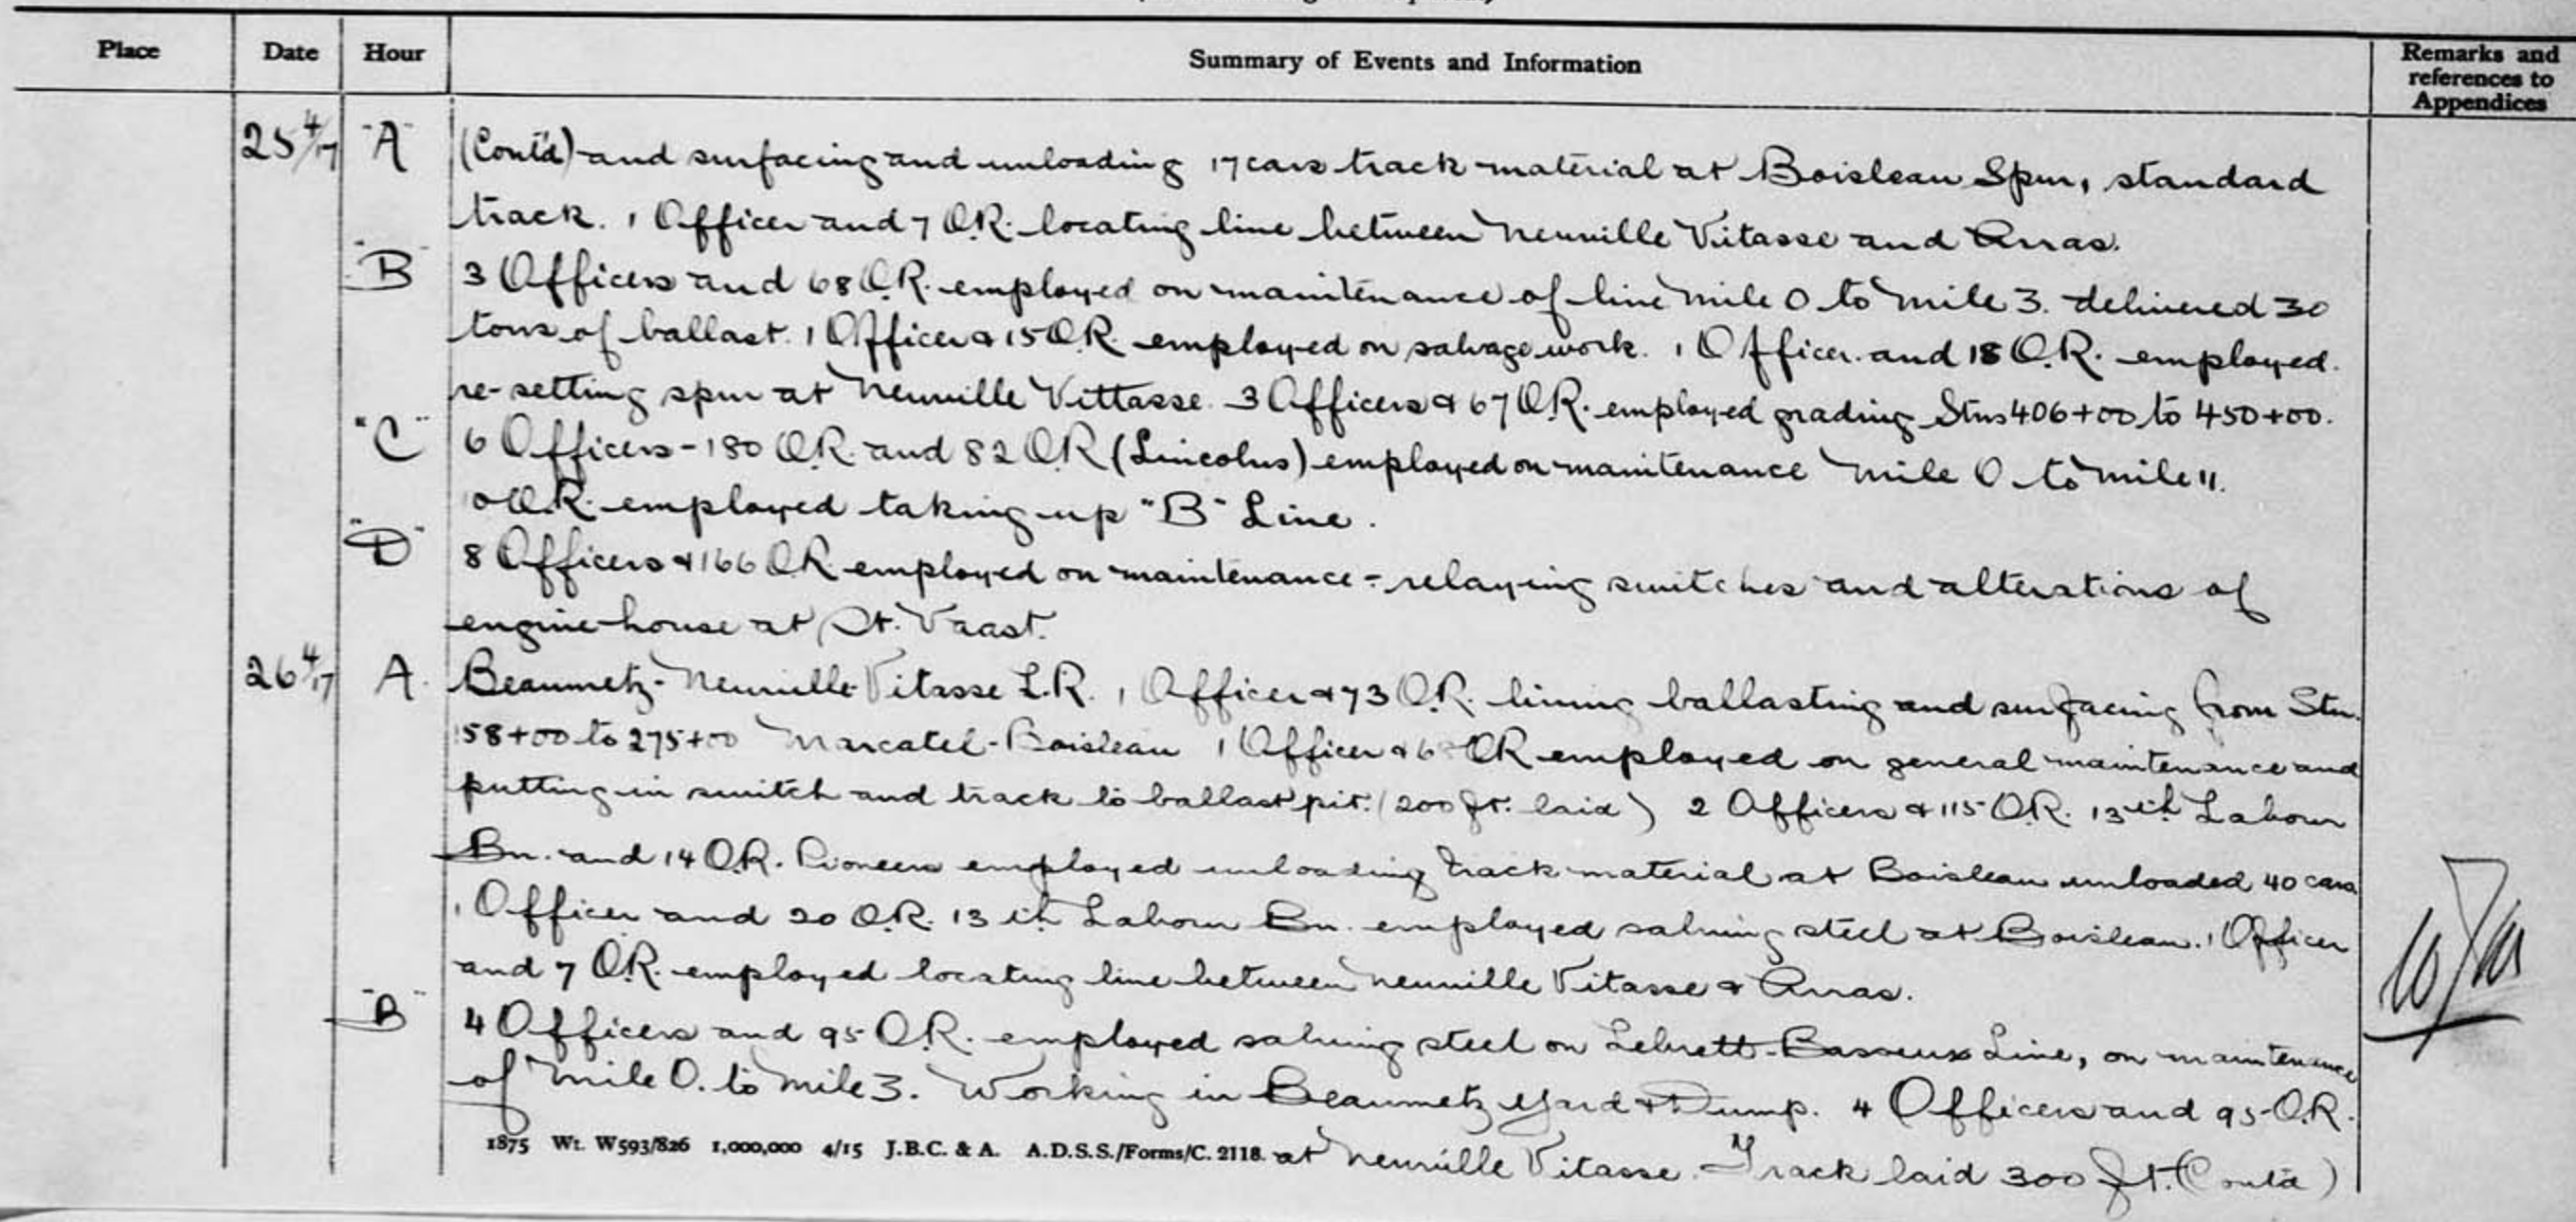 Place Date Hour Summary of Events and Information Remarks and references to Appendices
25 4/17 "A" (Contd) and surfacing and unloading 17 cars track material at Boisleau Spur, standard
track. 1 Officer and 7 O.R. locating line between Neuville Vitasse and Arras.
"B" 3 Officers and 68 O.R. employed on maintenance of line Mile 0 to Mile 3. delivered 30
tons of ballast. 1 Officer & 15 O.R. employed on salvage work. 1 Officer and 18 O.R. employed
re-setting spur at Neuville Vittasse. 3 Officers & 67 O.R. employed grading Stns 406+00 to 450+00.
"C" 6 Officers - 180 O.R. and 82 O.R (Lincolns) employed on maintenance Mile 0 to Mile 11.
O.R. employed taking up "B" Line.
"D" 8 Officers & 166 O.R. employed on maintenance - relaying switches and alterations of
engine-house at St. Vaast.
26 4/17 A. Beaumetz-Neuville-Vitasse L.R. 1 Officer & 73 O.R. lining ballasting and surfacing from Stn.
58+00 to 275+00 Marcatel-Boisleau 1 Officer & OR employed on general maintenance and
putting in switch and track to ballast pit. (200 ft. laid) 2 Officers & 115 O.R. 13th Labour
Bn. and 14 O.R. Pioneers employed unloading track material at Boisleau unloaded 40 cars
1 Officer and 20 O.R. 13th Labour Bn. employed salving steel at Boisleau. 1 Officer
and 7 O.R. employed locating line between Neuville Vitasse & Arras.
"B" 4 Officers and 95 O.R. employed salving steel on Basseux Line, on maintenance
of Mile 0. to Mile 3. Working in Beaumetz Yard & Dump. 4 Officers and 95 O.R.
1875 Wt. W593/826 1,000,000 4/15 J.B.C. & A. A.D.S.S./Forms/C. 2118. at Neuville Vitasse. Track laid 300 ft. (Contd)